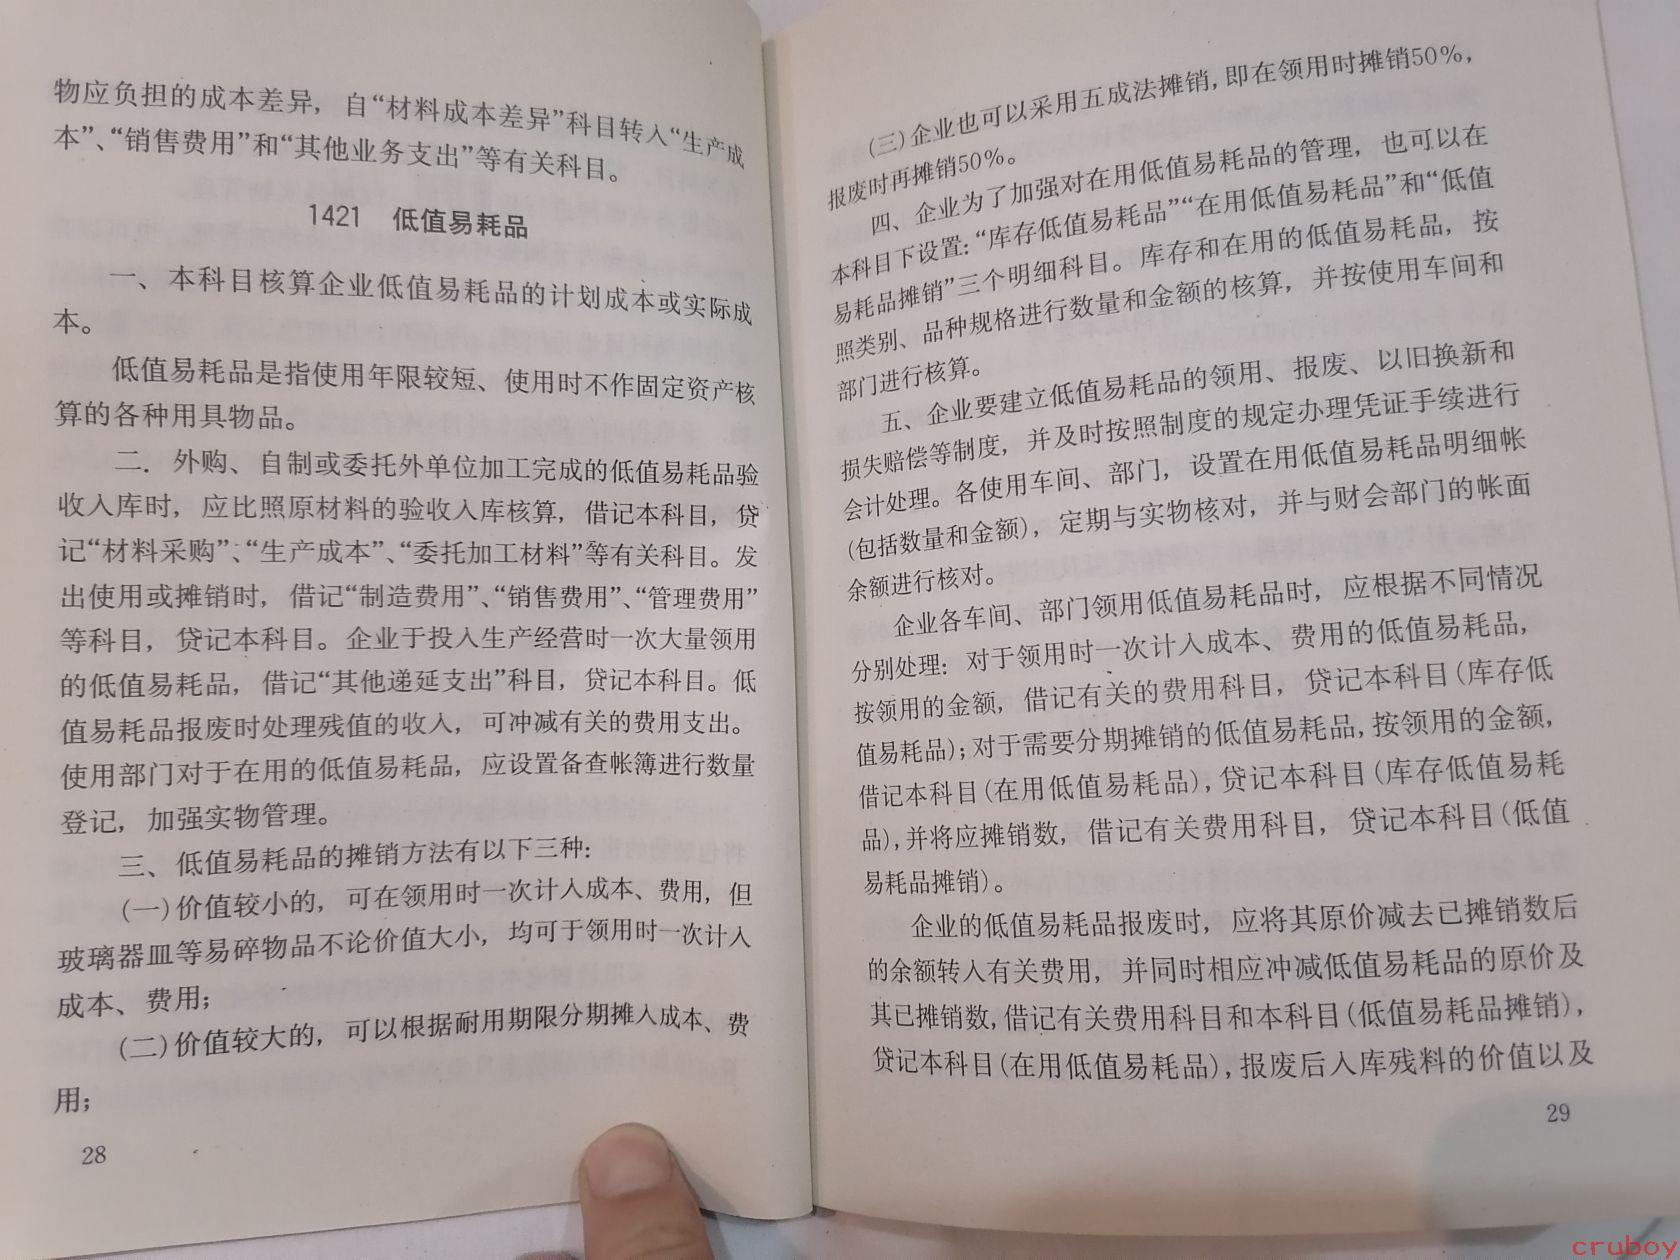 物应负担的成本差异，自“材料成本差异”科目转入“生产成
本”、“销售费用”和“其他业务支出”等有关科目。
1421 低值易耗品
一、本科目核算企业低值易耗品的计划成本或实际成
本。
低值易耗品是指使用年限较短、使用时不作固定资产核
算的各种用具物品。
二．外购、自制或委托外单位加工完成的低值易耗品验
收入库时，应比照原材料的验收入库核算，借记本科目，贷
记“材料采购”、“生产成本”、“委托加工材料”等有关科目。发
出使用或摊销时，借记“制造费用”、“销售费用”、“管理费用”
等科目，贷记本科目。企业于投入生产经营时一次大量领用
的低值易耗品，借记“其他递延支出”科目，贷记本科目。低
值易耗品报废时处理残值的收入，可冲减有关的费用支出。
使用部门对于在用的低值易耗品，应设置备查帐簿进行数量
登记，加强实物管理。
三、低值易耗品的摊销方法有以下三种：
(一)价值较小的，可在领用时一次计入成本、费用，但
玻璃器皿等易碎物品不论价值大小，均可于领用时一次计入
成本、费用；
(二)价值较大的，可以根据耐用期限分期摊入成本、费
用；
28
(三)企业也可以采用五成法摊销，即在领用时摊销50%，
报废时再摊销50%。
四、企业为了加强对在用低值易耗品的管理，也可以在
本科目下设置：“库存低值易耗品”“在用低值易耗品”和“低值
易耗品摊销”三个明细科目。库存和在用的低值易耗品，按
照类别、品种规格进行数量和金额的核算，并按使用车间和
部门进行核算。
五、企业要建立低值易耗品的领用、报废、以旧换新和
损失赔偿等制度，并及时按照制度的规定办理凭证手续进行
会计处理。各使用车间、部门，设置在用低值易耗品明细帐
(包括数量和金额)，定期与实物核对，并与财会部门的帐面
余额进行核对。
企业各车间、部门领用低值易耗品时，应根据不同情况
分别处理：对于领用时一次计入成本、费用的低值易耗品，
按领用的金额，借记有关的费用科目，贷记本科目(库存低
值易耗品)；对于需要分期摊销的低值易耗品，按领用的金额，
借记本科目(在用低值易耗品)，贷记本科目(库存低值易耗
品)，并将应摊销数，借记有关费用科目，贷记本科目(低值
易耗品摊销)。
企业的低值易耗品报废时，应将其原价减去已摊销数后
的余额转入有关费用，并同时相应冲减低值易耗品的原价及
其已摊销数，借记有关费用科目和本科目(低值易耗品摊销)，
贷记本科目(在用低值易耗品)，报废后入库残料的价值以及
29
cruboy